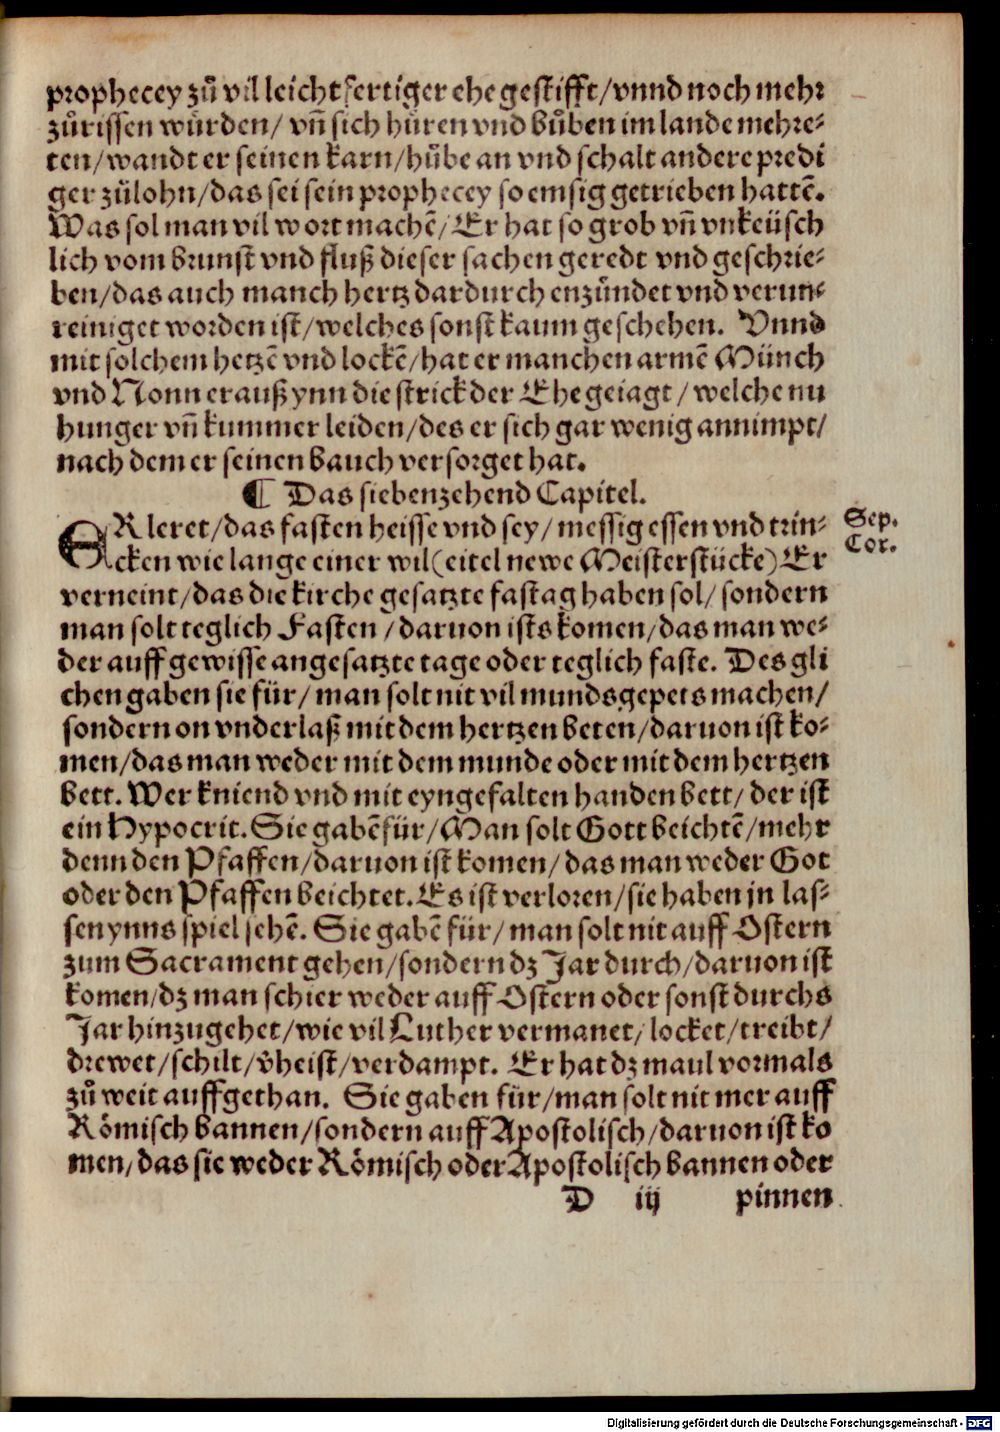 prophecey zů vil leichtfertiger ehe gestifft/vnnd noch mehr
zůrissen würden/ vn̄ sich hůren vnd bůben im lande mehre-
ten/wandt er seinen karn/hůbe an vnd schalt andere predi
ger zůlohn/das sei sein prophecey so emsig getrieben hattē.
Was sol man vil wort machē/Er hat so grob vn̄ vnkeüsch
lich vom brunst vnd fluß dieser sachen geredt vnd geschrie-
ben/das auch manch hertz dardurch enzündet vnd verun-
reiniget worden ist/welches sonst kaum geschehen. Vnnd
mit solchem hetzē vnd lockē/hat er manchen armē Münch
vnd Nonn erauß ynn die strick der Ehe geiagt/welche nu
hunger vn̄ kummer leiden/des er sich gar wenig annimpt/
nach dem er seinen bauch versorget hat.
¶ Das siebenzehend Capitel.
ER leret/das fasten heisse vnd sey/messig essen vnd trin-
cken wie lange einer wil(eitel newe Meisterstücke)Er
verneint/das die kirche gesatzte fastag haben sol/sondern
man solt teglich Fasten/daruon ists komen/das man we-
der auff gewisse angesatzte tage oder teglich faste. Des gli
chen gaben sie für/man solt nit vil mundsgepets machen/
sondern on vnderlaß mit dem hertzen beten/daruon ist ko-
men/das man weder mit dem munde oder mit dem hertzen
bett. Wer kniend vnd mit eyngefalten handen bett/der ist
ein Hypocrit. Sie gabē für/Man solt Gott beichtē/mehr
denn den Pfaffen/daruon ist komen/das man weder Got
oder den Pfaffen beichtet. Es ist verloren/sie haben jn las-
sen ynns spiel sehē. Sie gabē für/man solt nit auff Ostern
zum Sacrament gehen/sondern dz Jar durch/daruon ist
komen/dz man schier weder auff Ostern oder sonst durchs
Jar hinzugehet/wie vil Luther vermanet/locket/treibt/
drewet/schilt/v̊heist/verdampt. Er hat dz maul vormals
zů weit auffgethan. Sie gaben für/man solt nit mer auff
Römisch bannen/sondern auff Apostolisch/daruon ist ko
men/das sie weder Römisch oder Apostolisch bannen oder
D iij pinnen
Sep.
Cor.
Digitalisierung gefördert durch die Deutsche Forschungsgemeinschaft - DFG